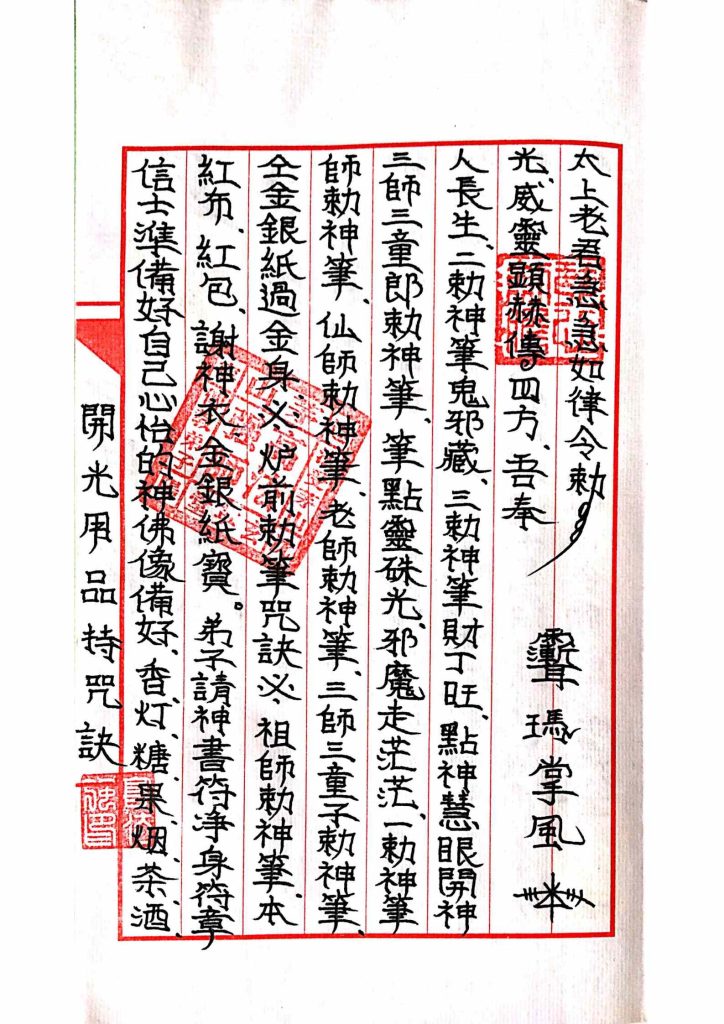 開光用品持咒訣
信士準備好自己心怡的神佛像備好、香灯、糖果烟茶酒、
紅布、紅包、謝神衣金銀紙寶。弟子請神書符净身符章
仝金銀紙過金身、必、炉前勅筆咒訣必、祖師勅神筆、本
師勅神筆、仙師勅神筆、老師勅神筆、三師三童子勅神筆、
三師三童郎勅神筆、筆點靈硃光、邪魔走茫茫、一勅神筆
人長生、二勅神筆鬼邪藏、三勅神筆財丁旺、點神慧眼開神
光、威靈顯赫傳四方、吾奉
太上老君急急如律令勅
掌風